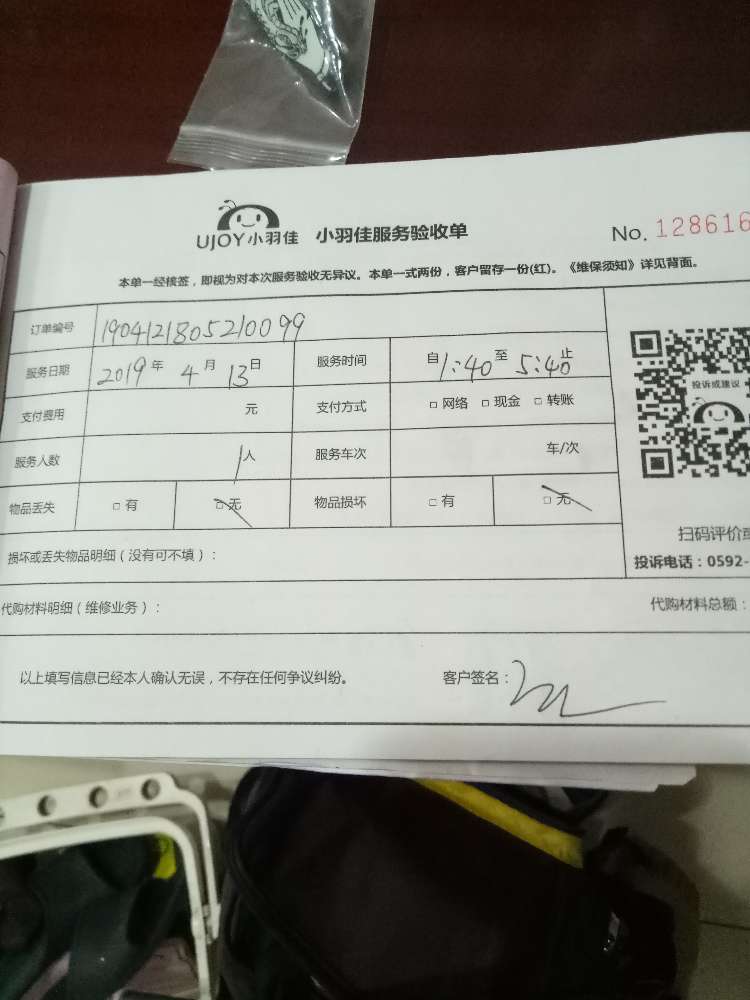 UJOY小羽佳 小羽佳服务验收单 No. 128616
本单一经核签，即视为对本次服务验收无异议。本单一式两份，客户留存一份(红)。《维保须知》详见背面。
订单编号 1904121805210099
服务日期 2019年 4月 13日 服务时间 自1:40至5:40止
支付费用 元 支付方式 □ 网络 □ 现金 □ 转账
服务人数 1人 服务车次 车/次
物品丢失 □ 有 □ 无 物品损坏 □ 有 □ 无
投诉或建议
扫码评价
投诉电话：0592-
损坏或丢失物品明细（没有可不填）：
代购材料明细（维修业务）： 代购材料总额：
以上填写信息已经本人确认无误，不存在任何争议纠纷。 客户签名：